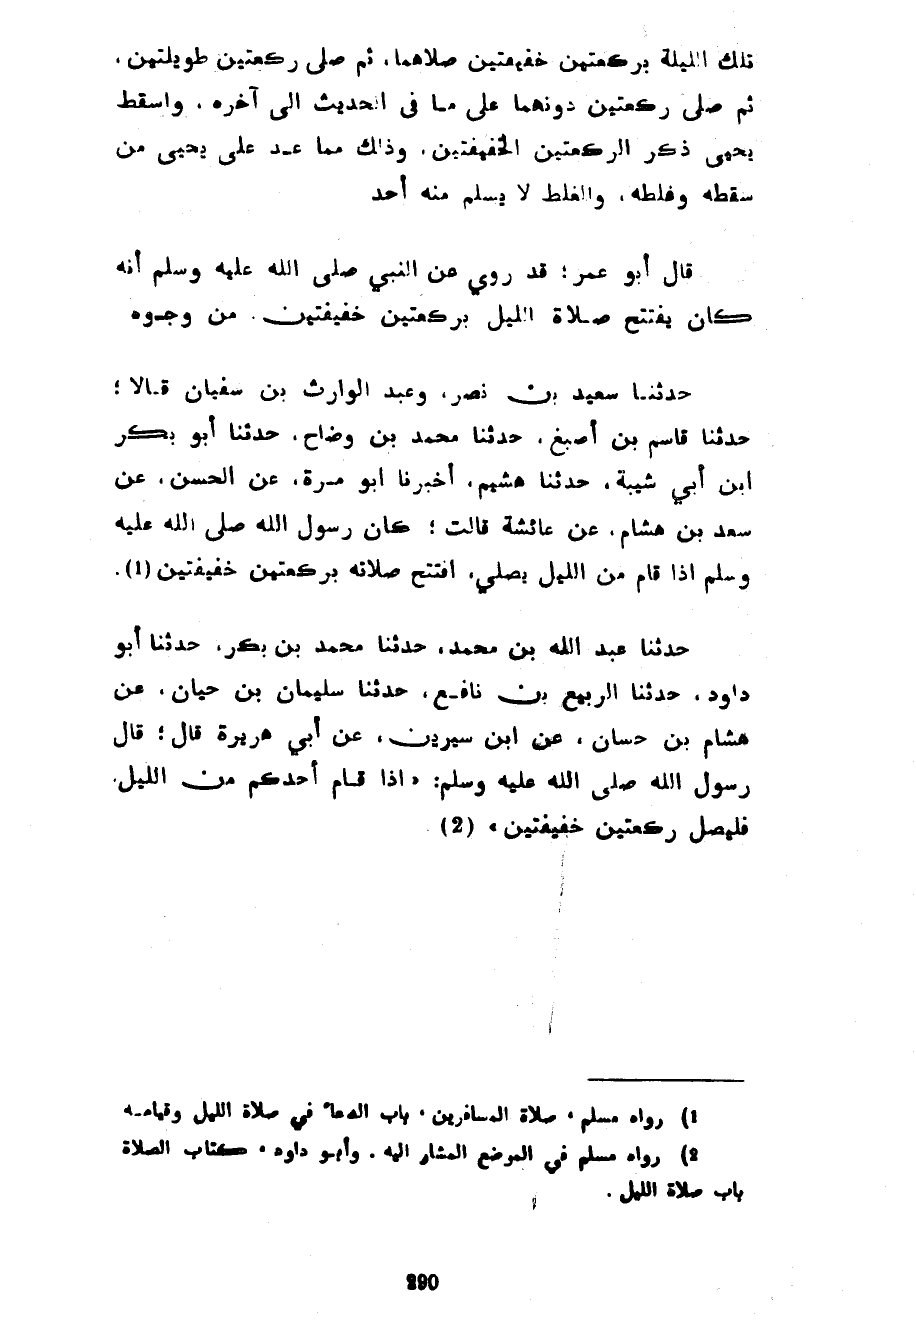 تلك الليلة بركعتين خفيفتين صلاهما، ثم صلى ركعتين طويلتين،
ثم صلى ركعتين دونهما على ما في الحديث الى آخره. واسقط
يحيى ذكر الركعتين الخفيفتين، وذلك مما عد على يحيى من
سقطه وغلطه، والغلط لا يسلم منه أحد
قال أبو عمر: قد روي عن النبي صلى الله عليه وسلم أنه
كان يفتتح صلاة الليل بركعتين خفيفتين. من وجوه
حدثنا سعيد بن نصر، وعبد الوارث بن سفيان قالا:
حدثنا قاسم بن أصبغ، حدثنا محمد بن وضاح، حدثنا أبو بكر
ابن أبي شيبة، حدثنا هشيم، أخبرنا ابو مرة، عن الحسن، عن
سعد بن هشام، عن عائشة قالت: كان رسول الله صلى الله عليه
وسلم اذا قام من الليل يصلي، افتتح صلاته بركعتين خفيفتين (1).
حدثنا عبد الله بن محمد، حدثنا محمد بن بكر، حدثنا أبو
داود، حدثنا الربيع بن نافع، حدثنا سليمان بن حيان، عن
هشام بن حسان، عن ابن سيرين، عن أبي هريرة قال: قال
رسول الله صلى الله عليه وسلم: «اذا قام أحدكم من الليل.
فليصل ركعتين خفيفتين» (2).
1) رواه مسلم، صلاة المسافرين، باب الدعاء في صلاة الليل وقيامه
2) رواه مسلم في الموضع المشار اليه. وأبو داود، كتاب الصلاة
باب صلاة الليل.
290